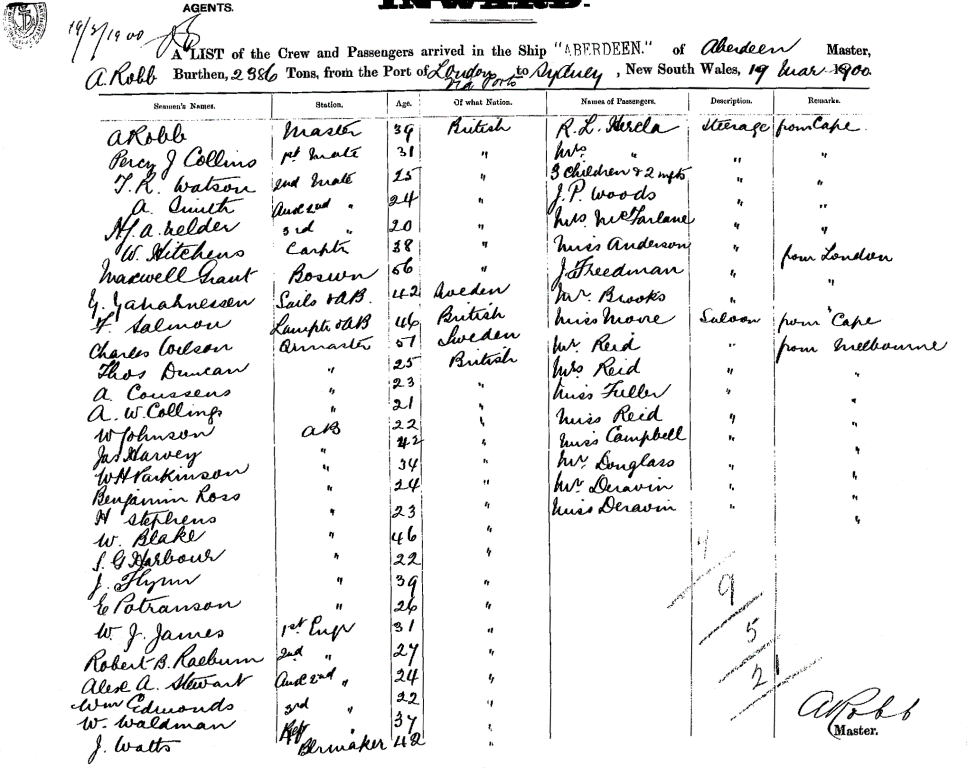 AGENTS.
INWARD.
19/3/1900
A LIST of the Crew and Passengers arrived in the Ship "ABERDEEN." of Aberdeen Master,
A. Robb Burthen, 2386 Tons, from the Port of London via Ports to Sydney, New South Wales, 19 Mar 1900.
Seamen's Names. Station. Age. Of what Nation. Names of Passengers. Description. Remarks.
A Robb Master 39 British R. L. Hercla Steerage from Cape
Percy J Collins 1st Mate 31 " Mrs " " "
T. R. Watson 2nd Mate 25 " 3 Children & 2 " "
A. Smith Aux 2nd " 24 " J. P. Woods " "
H. A. Nelder 3rd " 20 " Mrs McFarlane " "
W. Hitchens Carptr 38 " Miss Anderson " from London
Maxwell Grant Bosun 56 " J. Freedman " "
G. Sails & AB. 42 Sweden Mr Brooks "
F. Salmon Lamptr & AB 46 British Miss Moore Saloon from Cape
Charles Wilson Qrmaster 51 Sweden Mr Reid " from Melbourne
Thos Duncan " 25 British Mrs Reid " "
A. Coussens " 23 " Miss Fuller " "
A. W. Collings " 21 " Miss Reid " "
W Johnson AB 22 " Miss Campbell " "
Jas Harvey " 42 " Mr Douglass " "
W H Parkinson " 34 " Mr Deravin " "
Benjamin Ross " 24 " Miss Deravin " "
H Stephens " 23 "
W. Blake " 46 "
S. G Harbour " 22 "
J. Flynn " 39 " 9
E Potranson " 26 "
W. J. James 1st Engr 31 " 5
Robert B. Raeburn 2nd " 27 "
Alex A. Stewart Aux 2nd " 24 " 21
Wm Edmonds 3rd " 22 "
W. Waldman 37 " A Robb
J. Watts Blrmaker 42 " Master.